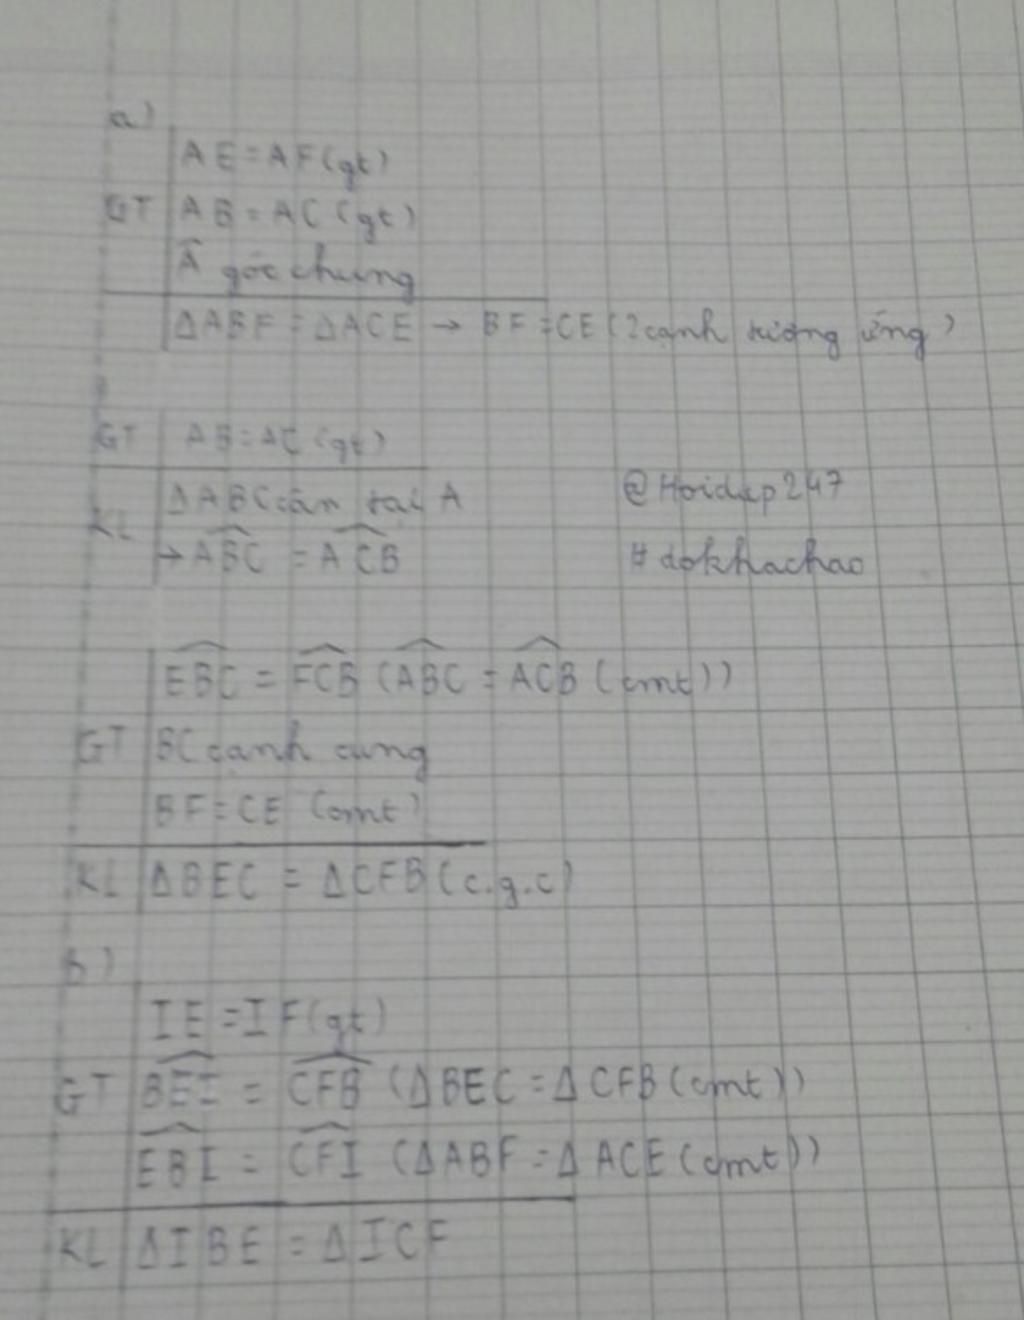 a)
AE = AF (gt)
GT AB = AC (gt)
Â góc chung
ΔABF = ΔACE → BF = CE (2 cạnh tương ứng)
GT AB = AC (gt)
ΔABC cân tại A
KL
→ ABC = ACB
@Hoidap247
#dokhachao
EBC = FCB (ABC = ACB (cmt))
GT BC cạnh cung
BF = CE (cmt)
KL ΔBEC = ΔCFB (c.g.c)
b)
IE = IF (gt)
GT BEI = CFB (ΔBEC = ΔCFB (cmt))
EBI = CFI (ΔABF = ΔACE (cmt))
KL ΔIBE = ΔICF